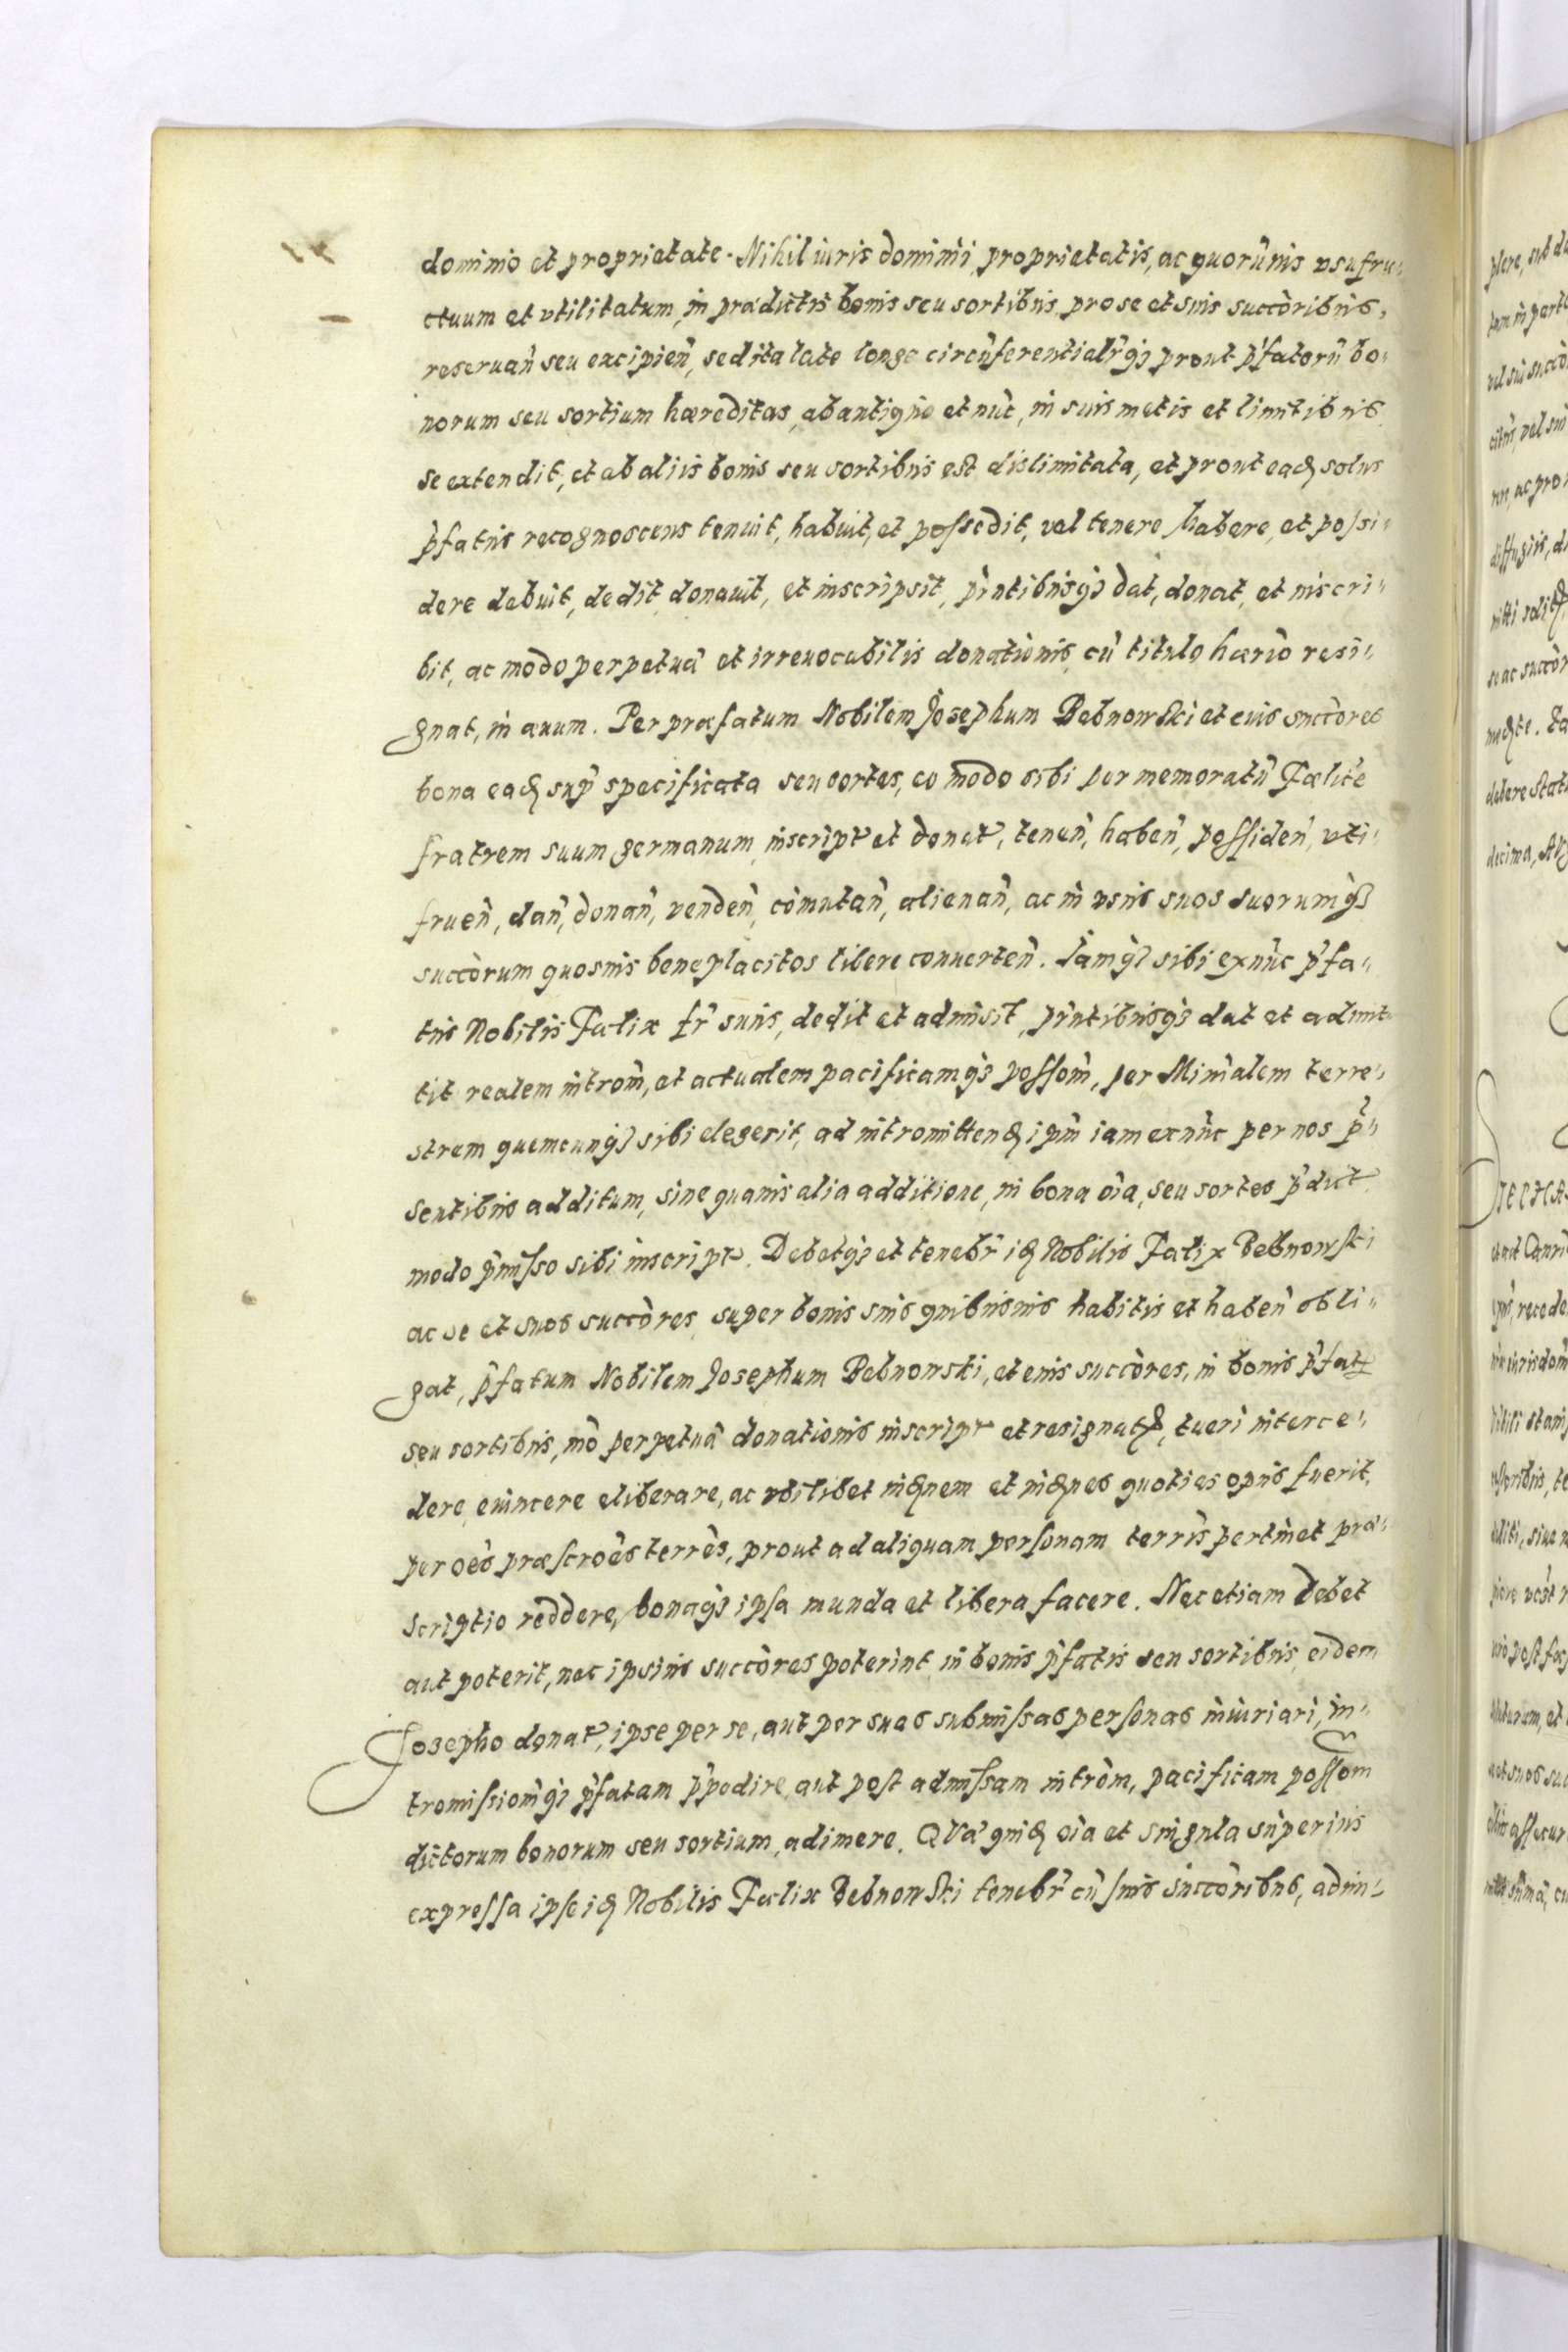 dominio et proprietate. Nihil iuris dominii proprietatis, ac quorũuis vsufru„
ctuum et vtilitatum, in prædictis bonis seu sortibus, pro se et suis succòribus,
reseruañ seu excipieñ, sed ita late longe circũferentialr̃q3 prout p̃fatorũ bo„
norum seu sortium hæreditas, ab antiquo et nũc, in suis metis et limitibus
se extendit, et ab aliis bonis seu sortibus est dislimitata, et prout eadꝫ solus
p̃fatus recognoscens tenuit, habuit, et possedit, vel tenere habere, et possi„
dere debuit, dedit donauit, et inscripsit, pñtibusq3 dat, donat, et inscri„
bit, ac modo perpetuæ et irreuocabilis donationis, cũ titulo hærio resi„
gnat, in æuum. Per præfatum Nobilem Josephum Bebnowski et eius succòres
bona eadꝫ sup̃ specificata seu sortes, eo modo sibi per memoratũ Fælice
fratrem suum germanum, inscript et donat, teneñ, habeñ, possideñ, vti„
frueñ, dañ, donañ, vendeñ, còmutañ, alienañ, ac in vsus suos suorumq3
succòrum quosuis beneplacitos libere conuerteñ. Iamq3 sibi ex nũc p̃fa„
tus Nobilis Fælix fr̃ suus, dedit et admisit, pñtibusq3 dat et admit„
tit realem introm̃, et actualem pacificamq3 possom̃, per Min̄alem terre„
strem quemcunq3 sibi elegerit, ad intromittendꝫ ipm̃ iam ex nũc per nos p̃„
sentibus additum, sine quauis alia additione, in bona oĩa, seu sortes p̃dict
modo p̃misso sibi inscript. Debetq3 et tenebr̃ idꝫ Nobilis Fælix Bebnowski
ac se et suos succòres, super bonis suis quibusuis habitis et habeñ obli„
gat, p̃fatum Nobilem Josephum Bebnowski, et eius succòres, in bonis p̃fat
seu sortibus, mõ perpetuæ donationis inscript et resignatꝫ, tueri interce„
dere, euincere eliberare, ac vbilibet indꝫnem et indꝫnes quoties opus fuerit,
per oẽs præscroẽs terrẽs, prout ad aliquam personam terrìs pertinet præ„
scriptio reddere, bonaq3 ipsa munda et libera facere. Nec etiam debet
aut poterit, nec ipsius succòres poterint, in bonis p̃fatis seu sortibus, eidem
Josepho donat, ipse per se, aut per suas submissas personas iniuriari, in„
tromissionq3 p̃fatam p̃pedire, aut post admissam introm̃, pacificam possom̃
dictorum bonorum seu sortium, adimere. QVæ quidꝫ oĩa et singula superius
expressa ipse idꝫ Nobilis Fælix Bebnowski tenebr̃ cũ suis succòribus, adim„